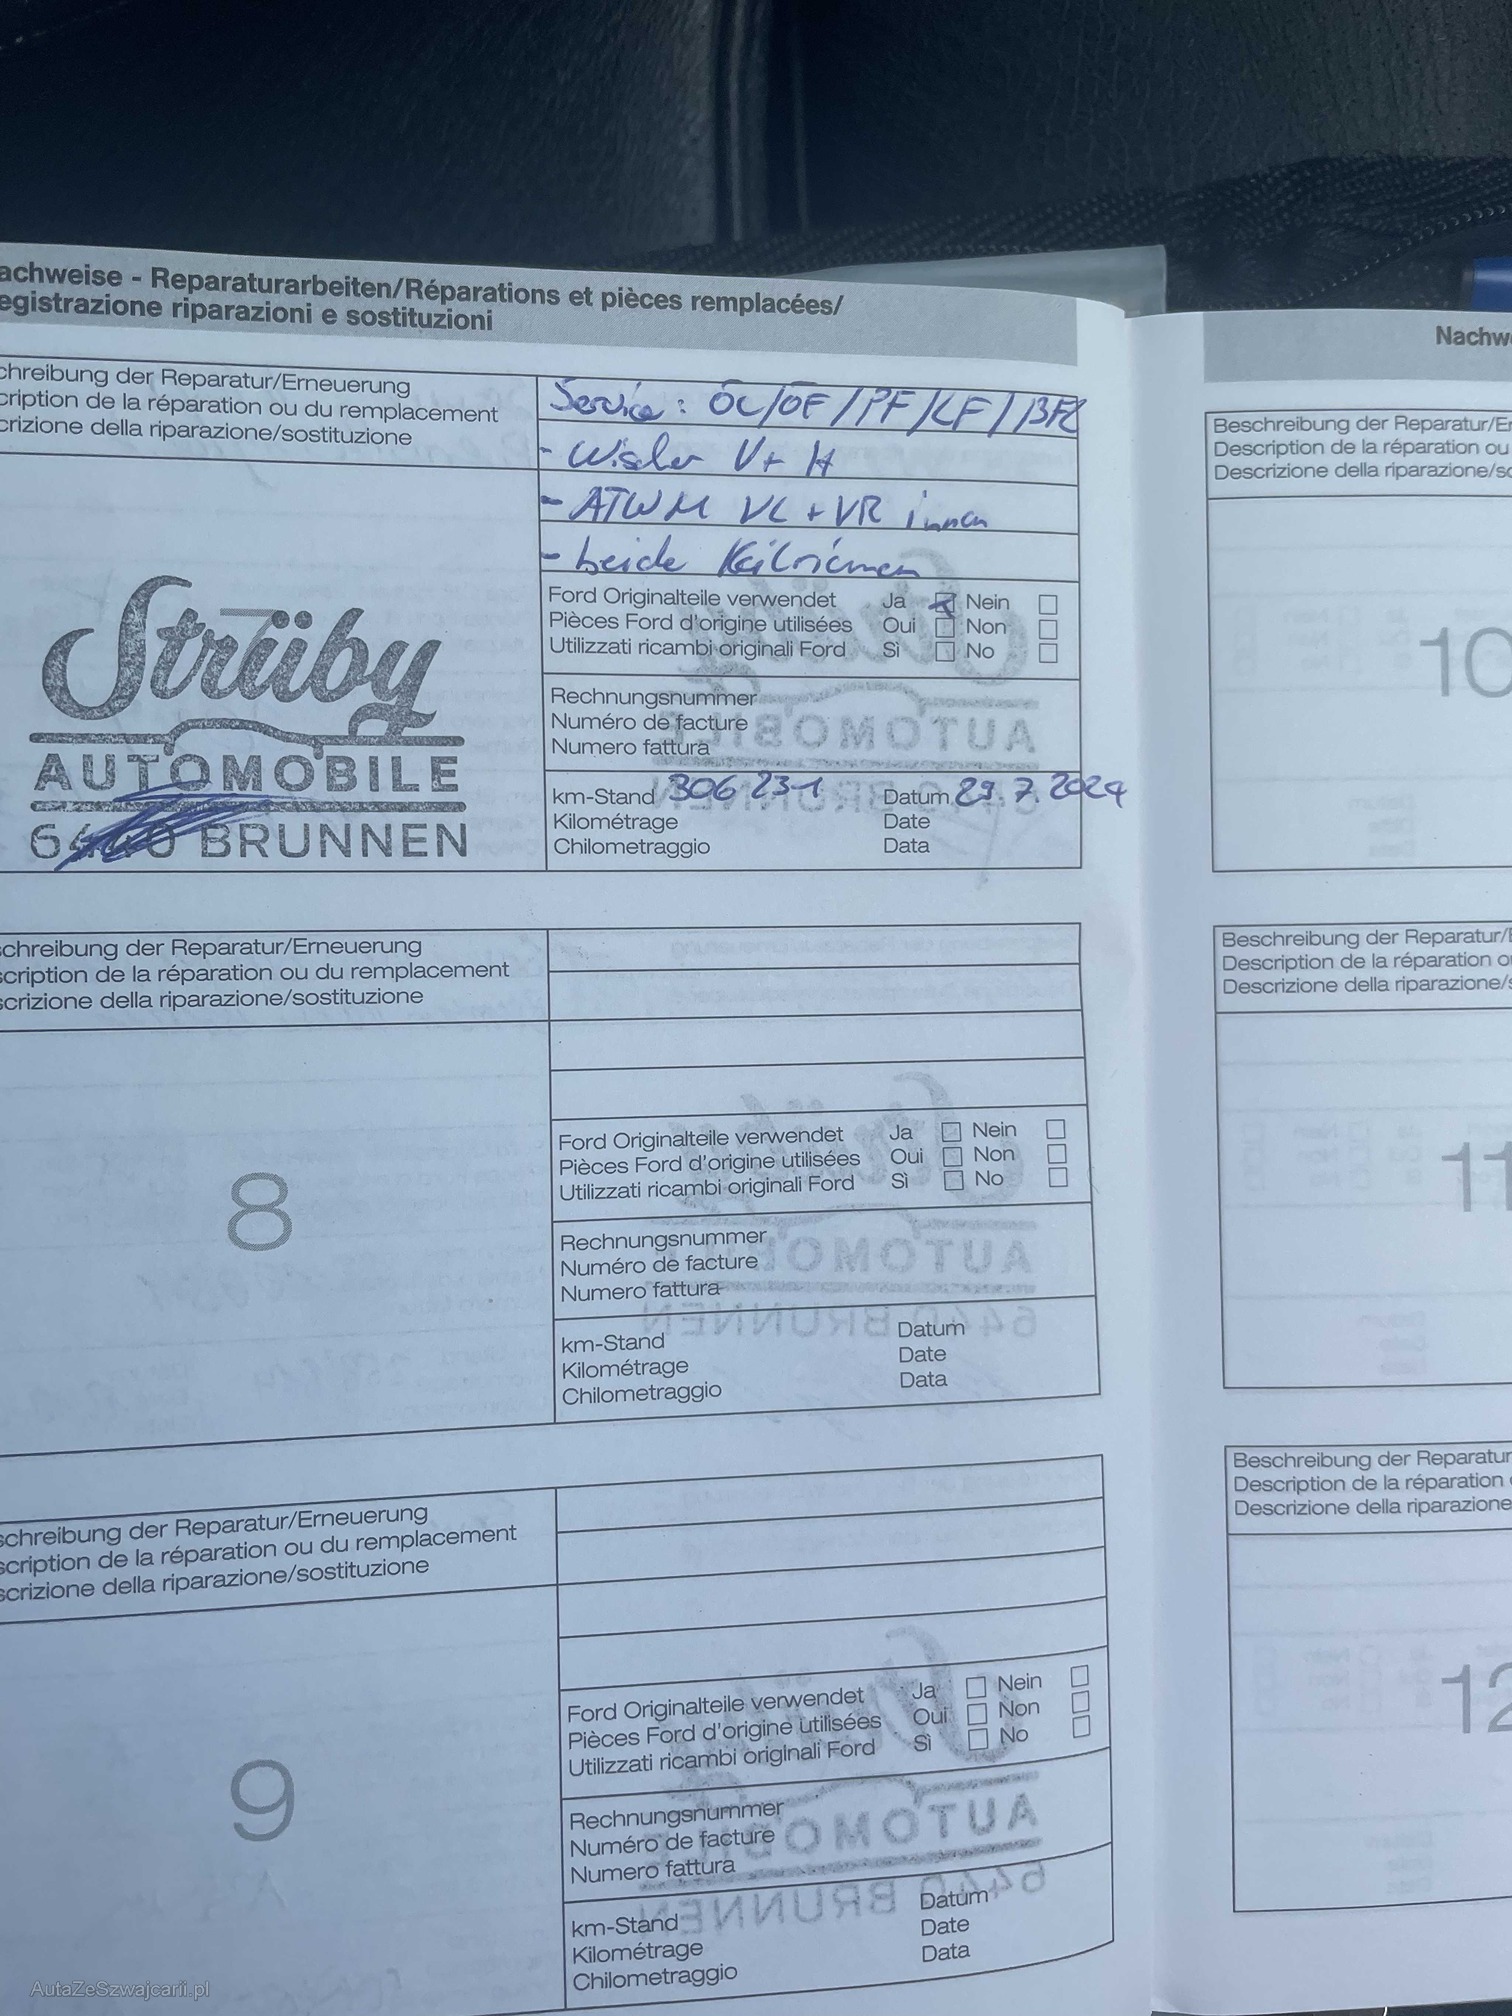 achweise - Reparaturarbeiten/Réparations et pièces remplacées/
egistrazione riparazioni e sostituzioni
chreibung der Reparatur/Erneuerung
cription de la réparation ou du remplacement
crizione della riparazione/sostituzione
Service: ÖL/ÖF/PF/LF/BFL
- Wischer V+H
- ATWM VL + VR innen
- beide Keilriemen
Strüby
AUTOMOBILE
BRUNNEN
Ford Originalteile verwendet Ja Nein
Pièces Ford d'origine utilisées Oui Non
Utilizzati ricambi originali Ford Sì No
Rechnungsnummer
Numéro de facture
Numero fattura
km-Stand 306 231 Datum 29.7.2024
Kilométrage Date
Chilometraggio Data
schreibung der Reparatur/Erneuerung
scription de la réparation ou du remplacement
scrizione della riparazione/sostituzione
8
Ford Originalteile verwendet Ja Nein
Pièces Ford d'origine utilisées Oui Non
Utilizzati ricambi originali Ford Sì No
Rechnungsnummer
Numéro de facture
Numero fattura
km-Stand Datum
Kilométrage Date
Chilometraggio Data
schreibung der Reparatur/Erneuerung
scription de la réparation ou du remplacement
scrizione della riparazione/sostituzione
9
Ford Originalteile verwendet Ja Nein
Pièces Ford d'origine utilisées Oui Non
Utilizzati ricambi originali Ford Sì No
Rechnungsnummer
Numéro de facture
Numero fattura
km-Stand Datum
Kilométrage Date
Chilometraggio Data
Nachw
Beschreibung der Reparatur/Er
Description de la réparation ou
Descrizione della riparazione/so
10
Beschreibung der Reparatur/
Description de la réparation o
Descrizione della riparazione/
11
Beschreibung der Reparatur
Description de la réparation
Descrizione della riparazione
12
AutaZeSzwajcarii.pl